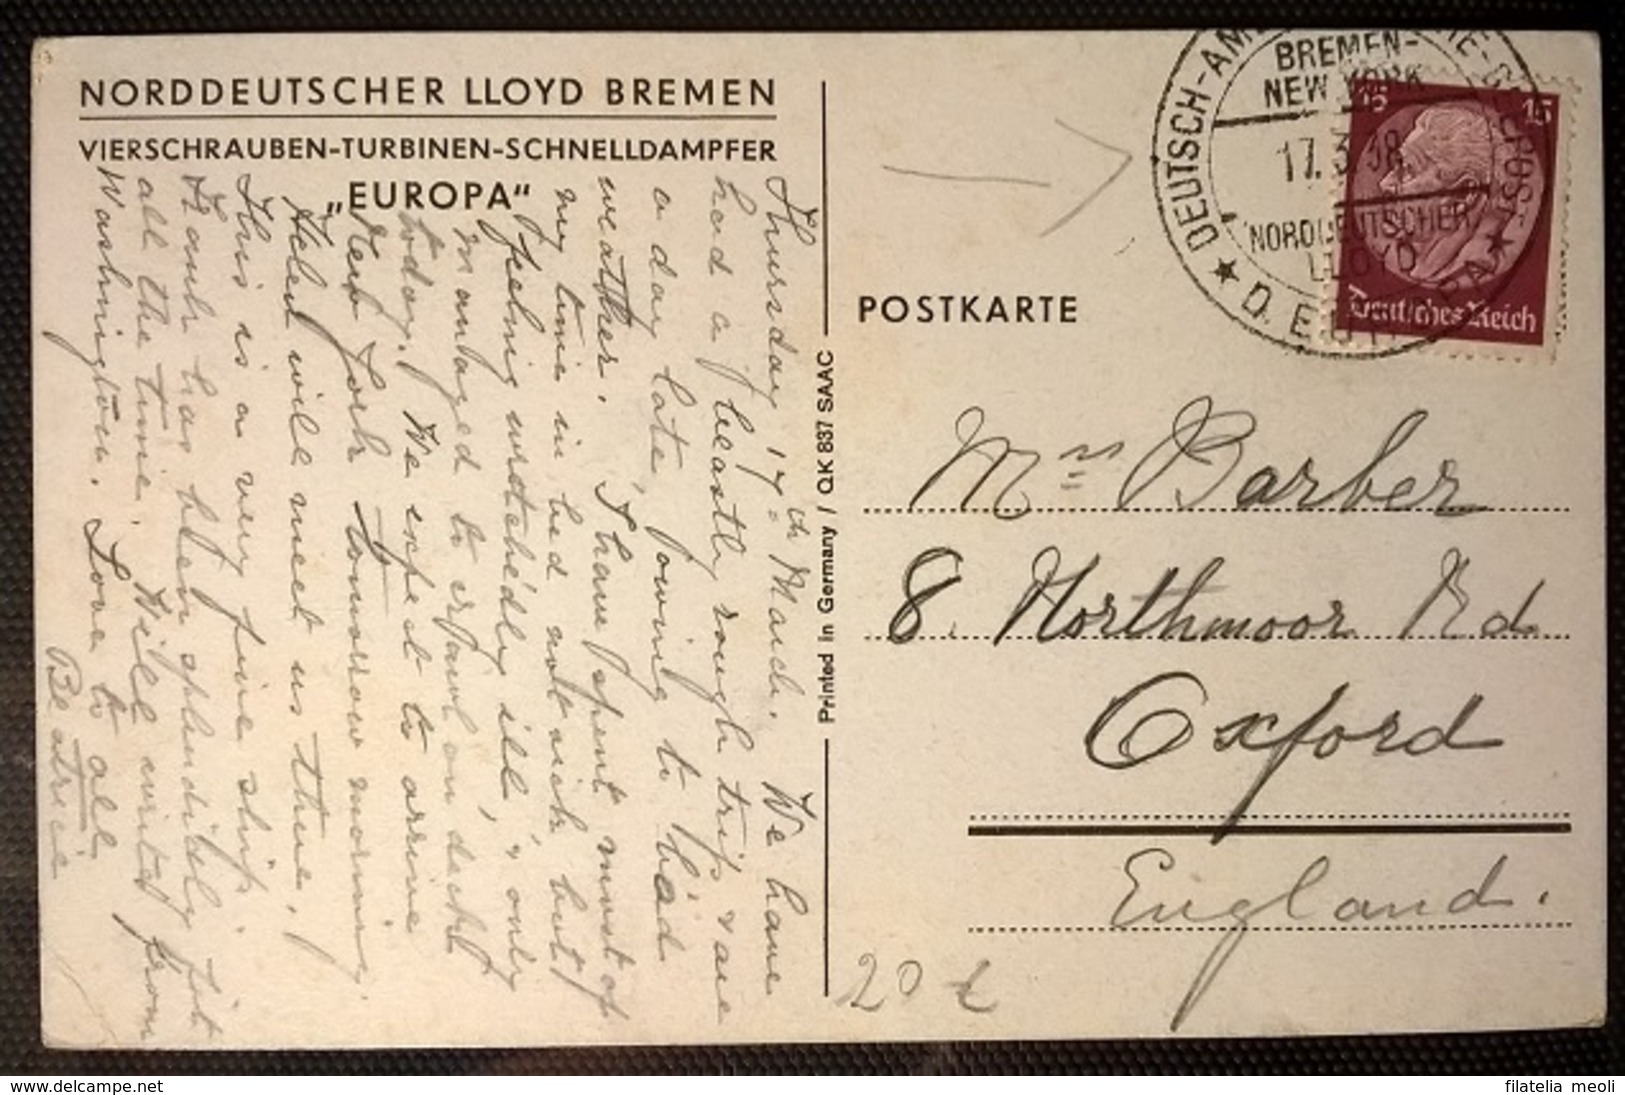 NORDDEUTSCHER LLOYD BREMEN
VIERSCHRAUBEN-TURBINEN-SCHNELLDAMPFER
„EUROPA“
Thursday 17th March. We have
had a beastly rough trip & are
a day late, owing to bad
weather. I have spent most of
my time in bed not sick but
feeling wretchedly ill, & only
managed to crawl on deck
today. We expect to arrive
New York tomorrow morning.
Helen will meet us there.
This is a very fine ship.
Frank has been splendidly fit
all the time. Will write from
Washington. Love to all
Beatrice
Printed in Germany / QK 837 SAAC
POSTKARTE
DEUTSCH-AMERIKANISCHE SEEPOST
BREMEN-
NEW YORK
17.3.38
NORDDEUTSCHER
LLOYD
D. EUROPA
15 15
Deutsches Reich
Mrs Barber
8. Northmoor Rd
Oxford
England.
20
www.delcampe.net
filatelia meoli